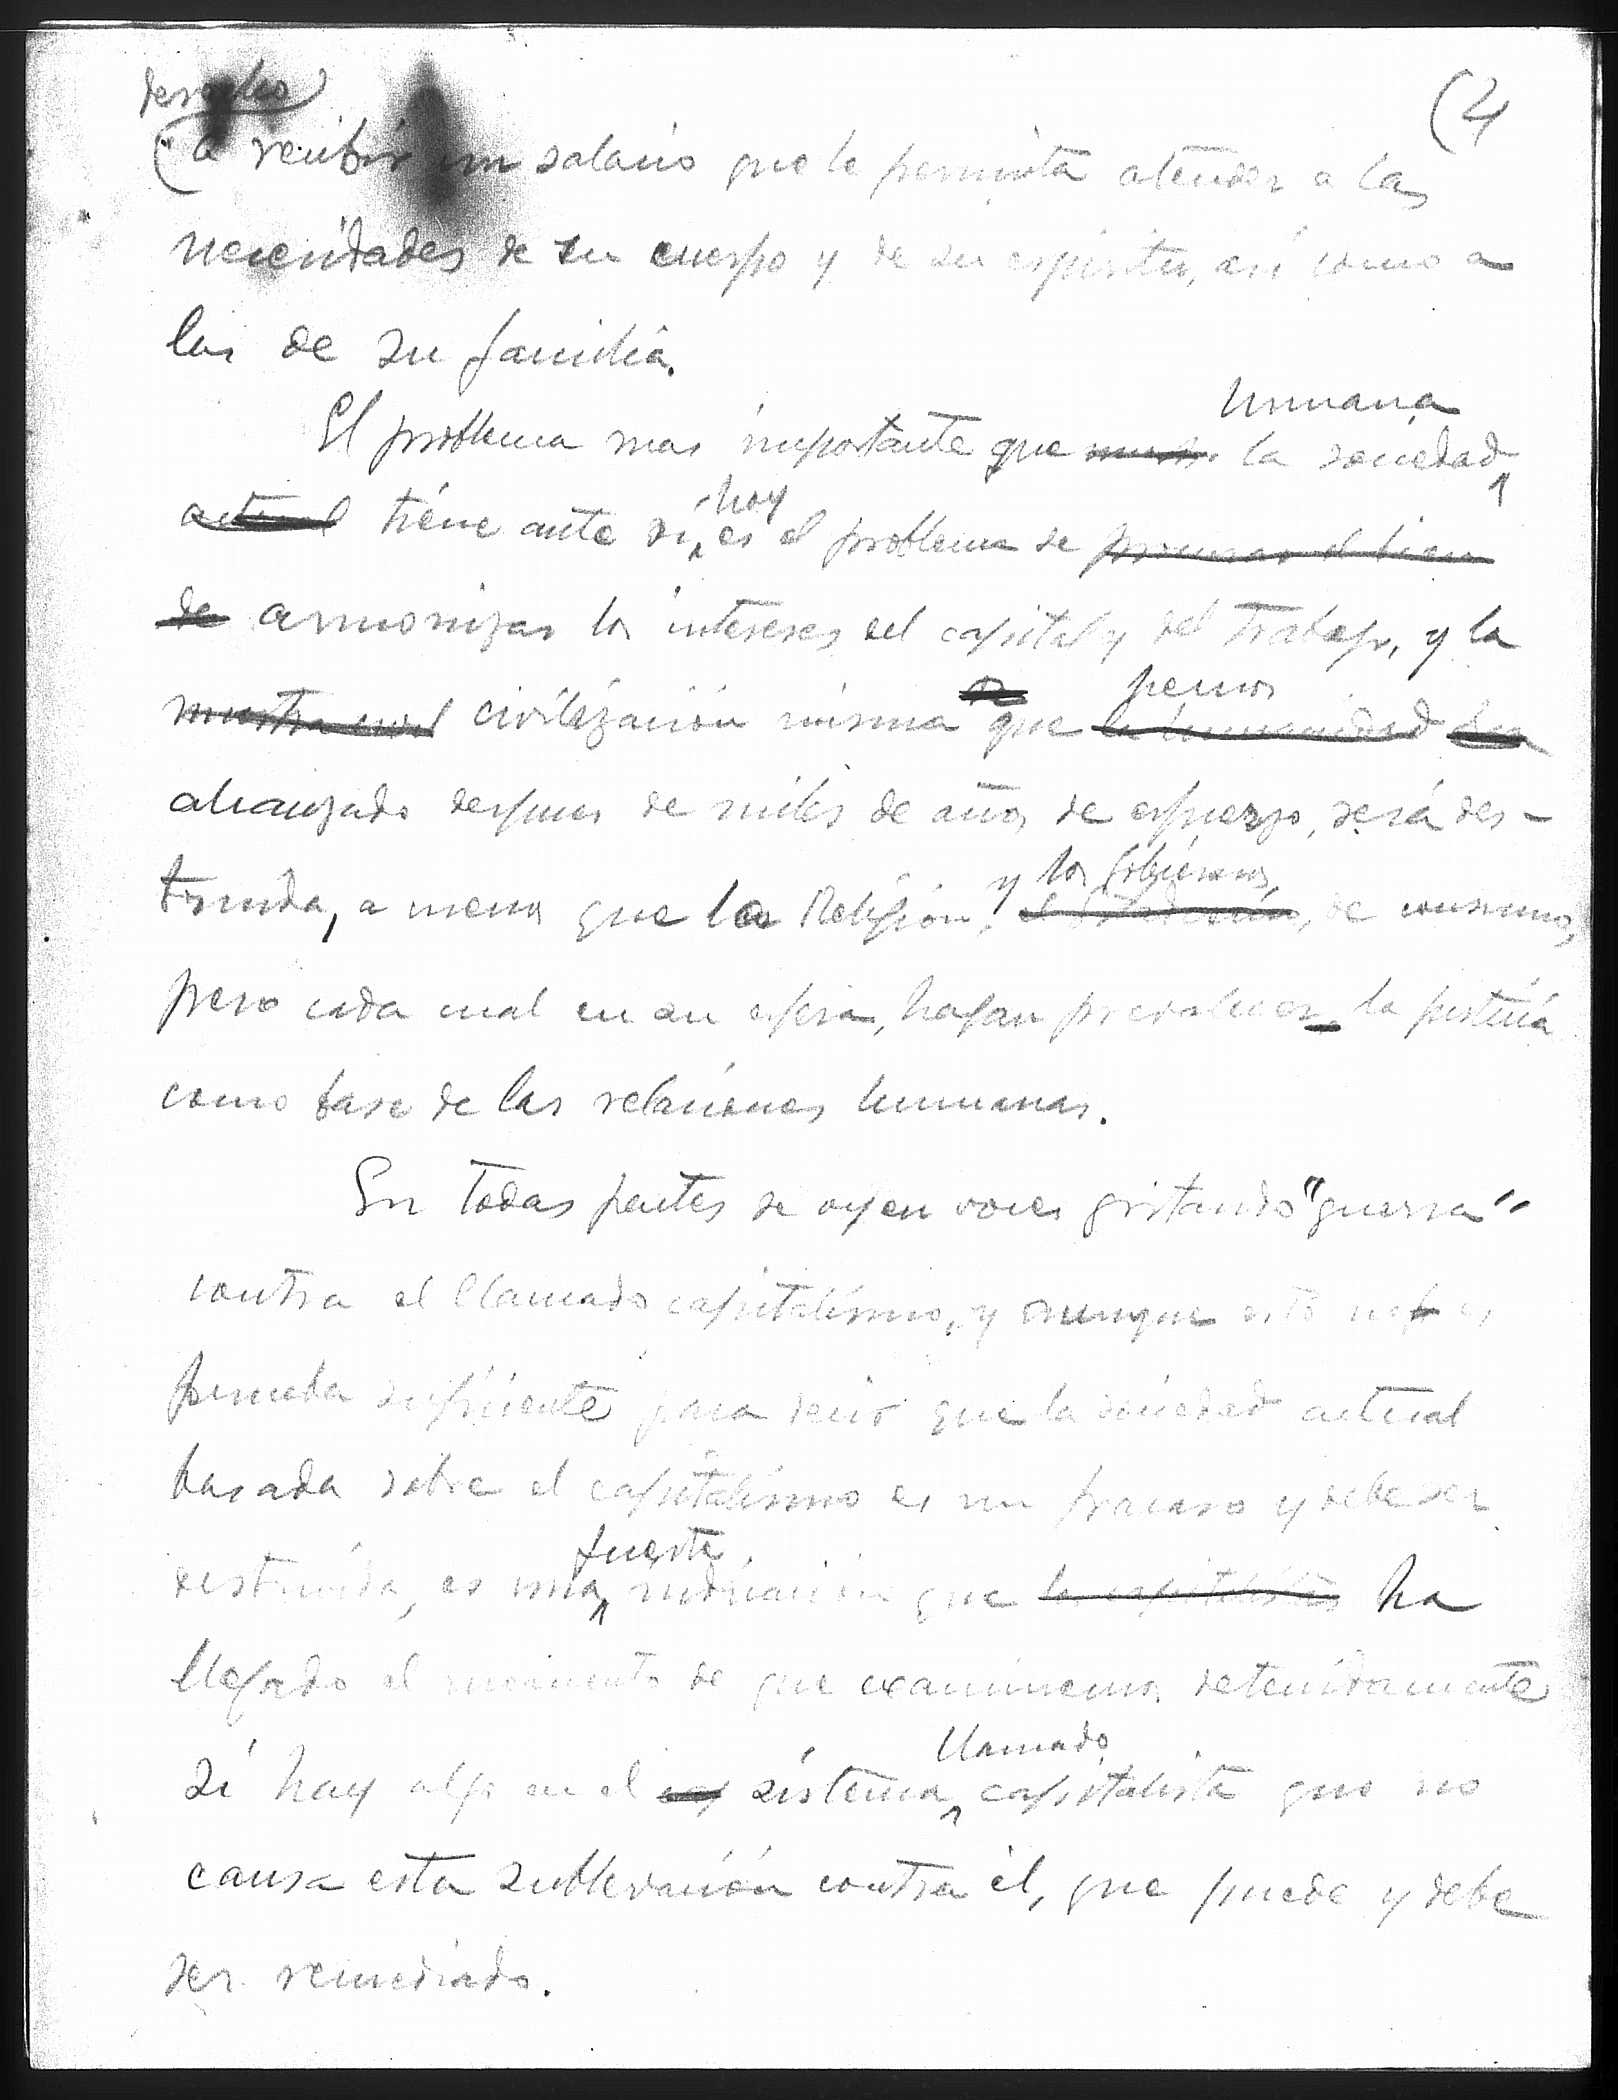 derecho
(4
a recibir un salario que le permita atender a las
necesidades de su cuerpo y de su espiritu, así como a
las de su familia.
humana
El problema mas importante que la sociedad
hoy
actual tiene ante sí, es el problema de procurar el bien
de armonizar los intereses del capital y del trabajo, y la
hemos
nuestra civilización misma que la humanidad ha
alcanzado despues de miles de años de esfuerzo, será des-
y los Gobiernos,
truida, a menos que la Religion, de consuno,
pero cada cual en su esfera, hagan prevalecer la justicia
como base de las relaciones humanas.
En todas partes se oyen voces gritando "guerra"
contra el llamado capitalismo, y aunque esto no es
prueba suficiente para decir que la sociedad actual
basada sobre el capitalismo es un fracaso y debe ser
fuerte
destruida, es una indicación que los capitalistas ha
llegado el momento de que examinemos detenidamente
llamado
si hay algo en el sistema capitalista que no
causa esta sublevación contra él, que puede y debe
ser remediado.